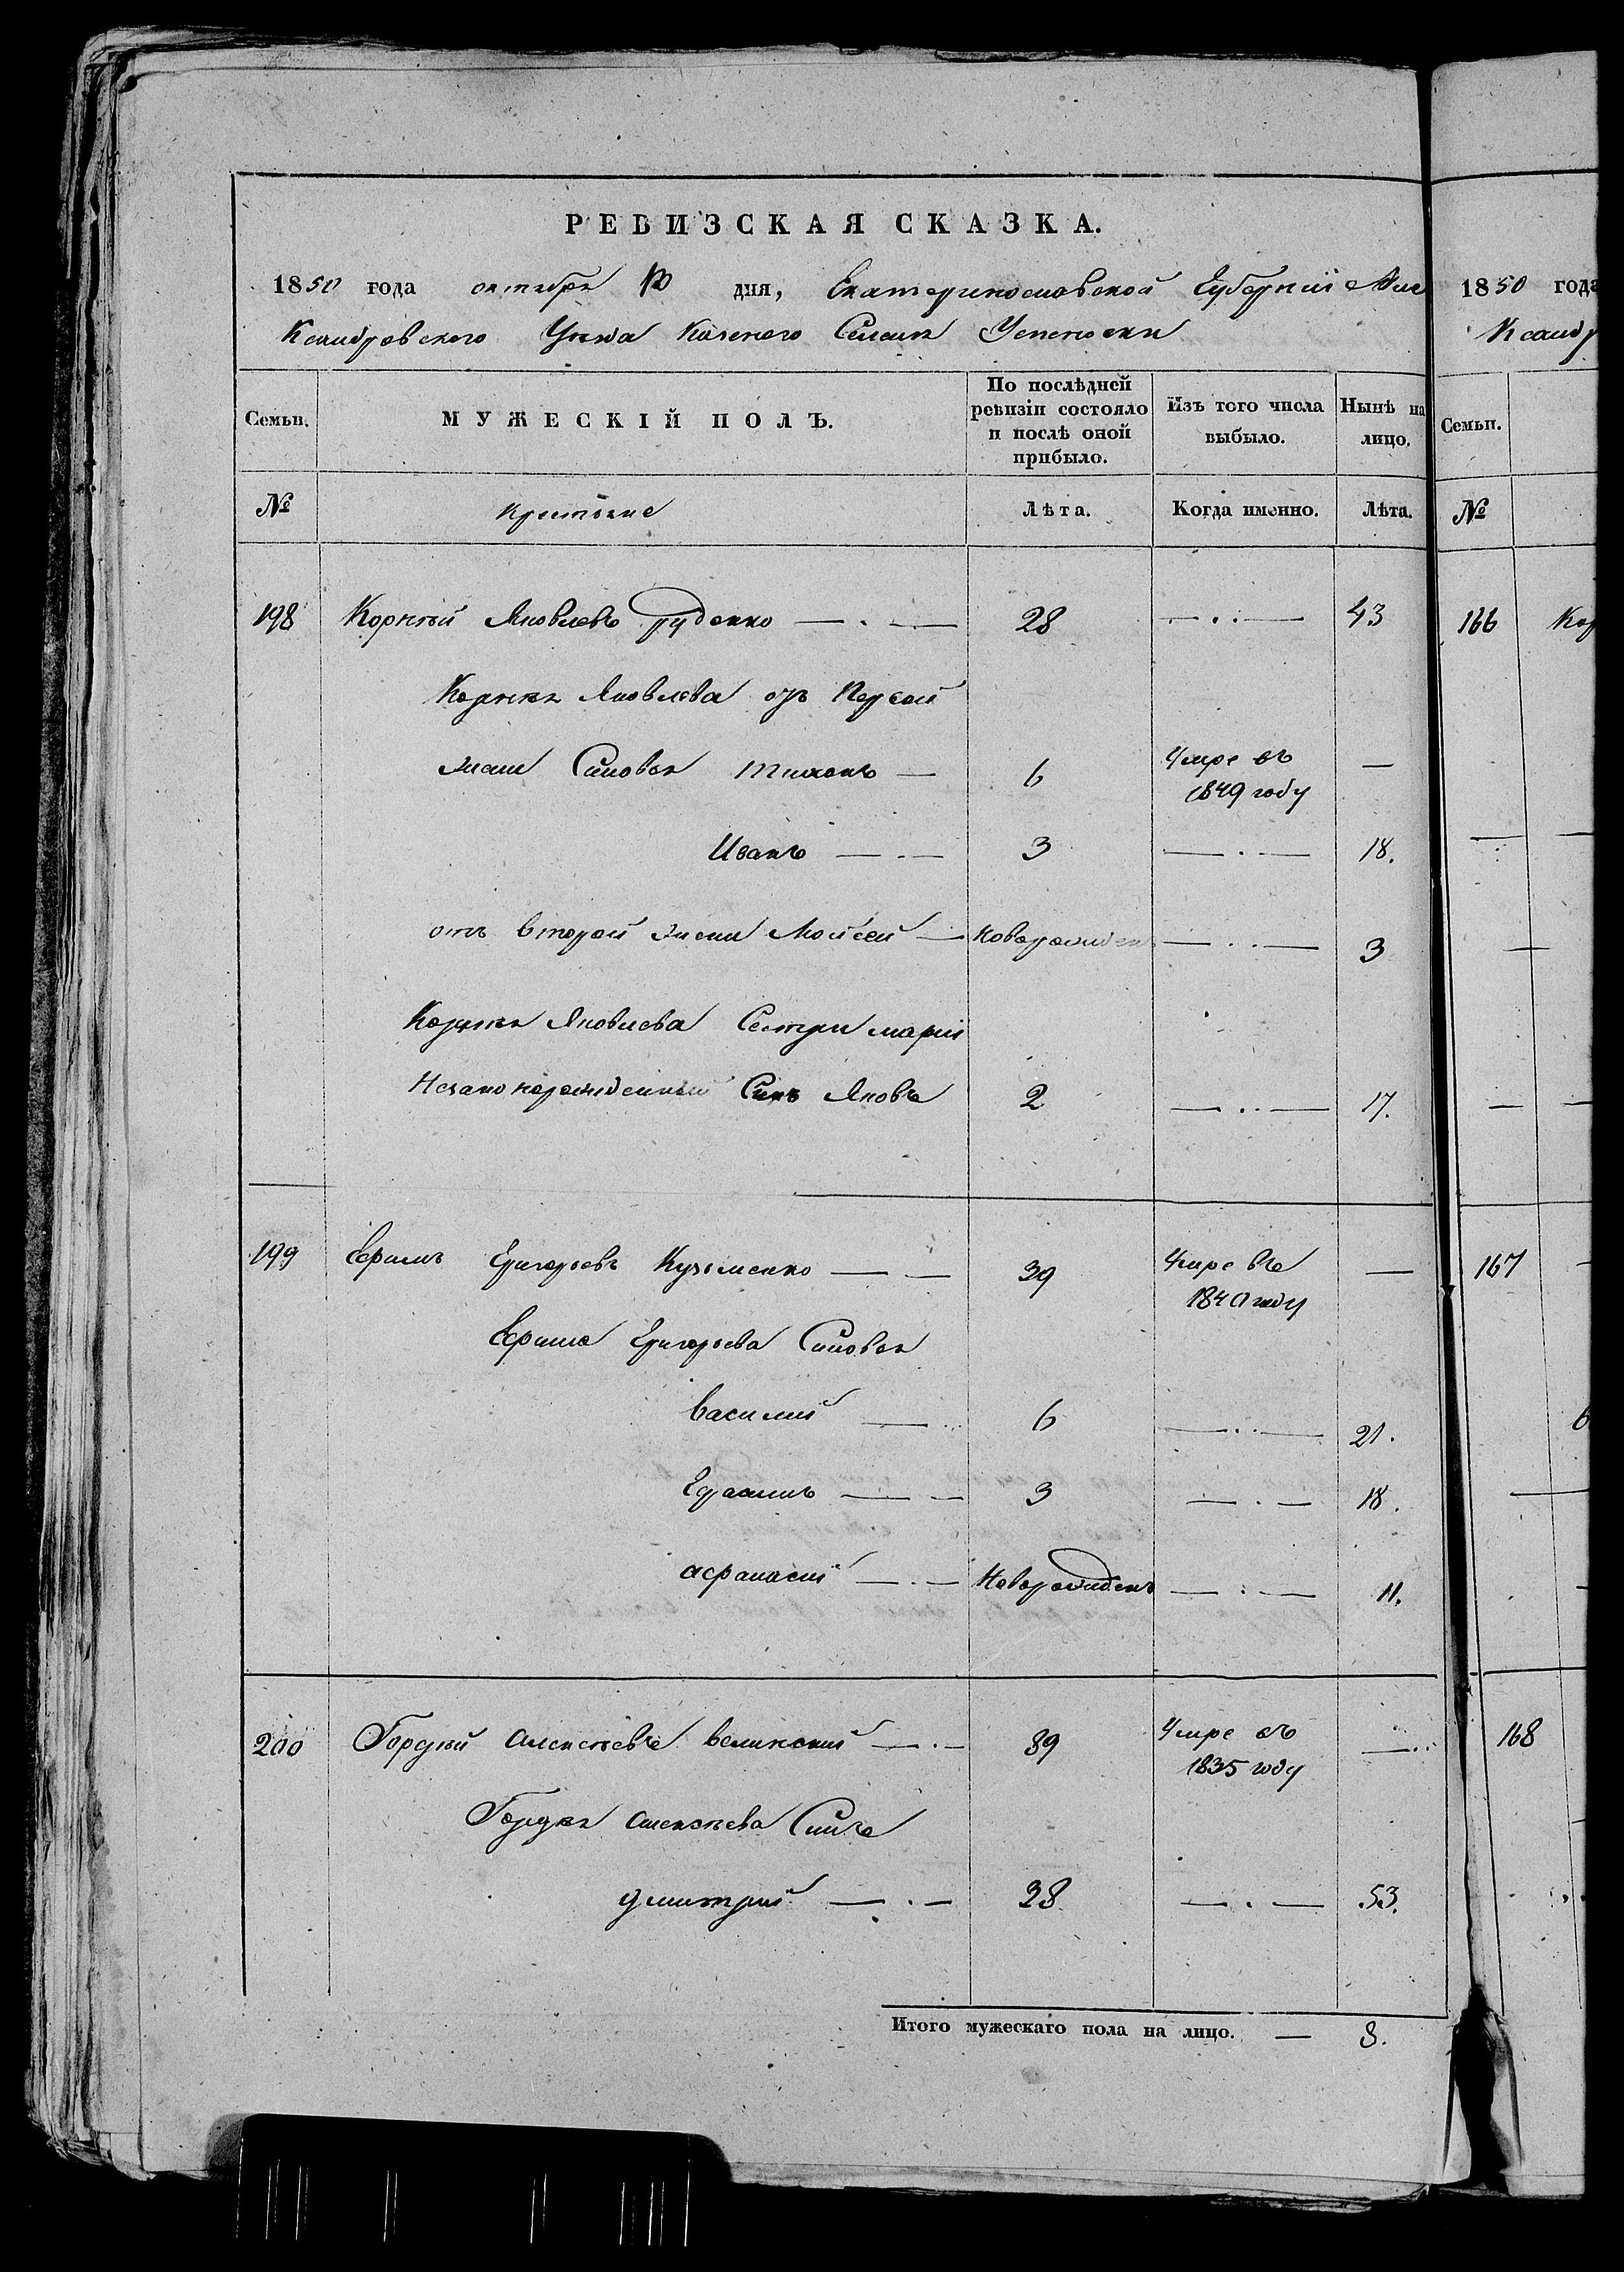 РЕВИЗСКАЯ СКАЗКА.
1850 года октября 10 дня, Екатеринославской Губерніи Але
ксандровского Уезда Казеного Селенія Успеновки
Семьи. МУЖЕСКІЙ ПОЛЪ. По послѣдней ревизіи состояло и послѣ оной прибыло. Изъ того числа выбыло. Нынѣ на лицо.
№ Крестьяне Лѣта. Когда именно. Лѣта.
198 Корнѣй Яковлевъ Руденко 28 — 43
Корнѣя Яковлева отъ Первой
жени Синовья Тихонъ — 6 Умре въ 1849 году —
Иванъ — 3 — 18.
отъ второй жени Мойсей — Новорожденъ — 3
Корнѣя Яковлева Сестри Маріи
Незаконорожденный Синъ Яковъ 2 — 17.
199 Ефимъ Григорьевъ Кузьменко — 39 Умре въ 1840 году —
Ефима Григорьева Синовья
Василий — 6 — 21.
Герасимъ — 3 — 18.
Афанасий — Новорожденъ — 11.
200 Гордѣй Алексѣевъ Великский — 89 Умре въ 1835 году —
Гордѣя Алексѣева Синъ
Дмитрий — 38 — 53.
Итого мужескаго пола на лицо. — 8.
1850 года
Ксандр
Семьи.
№
166
167
168